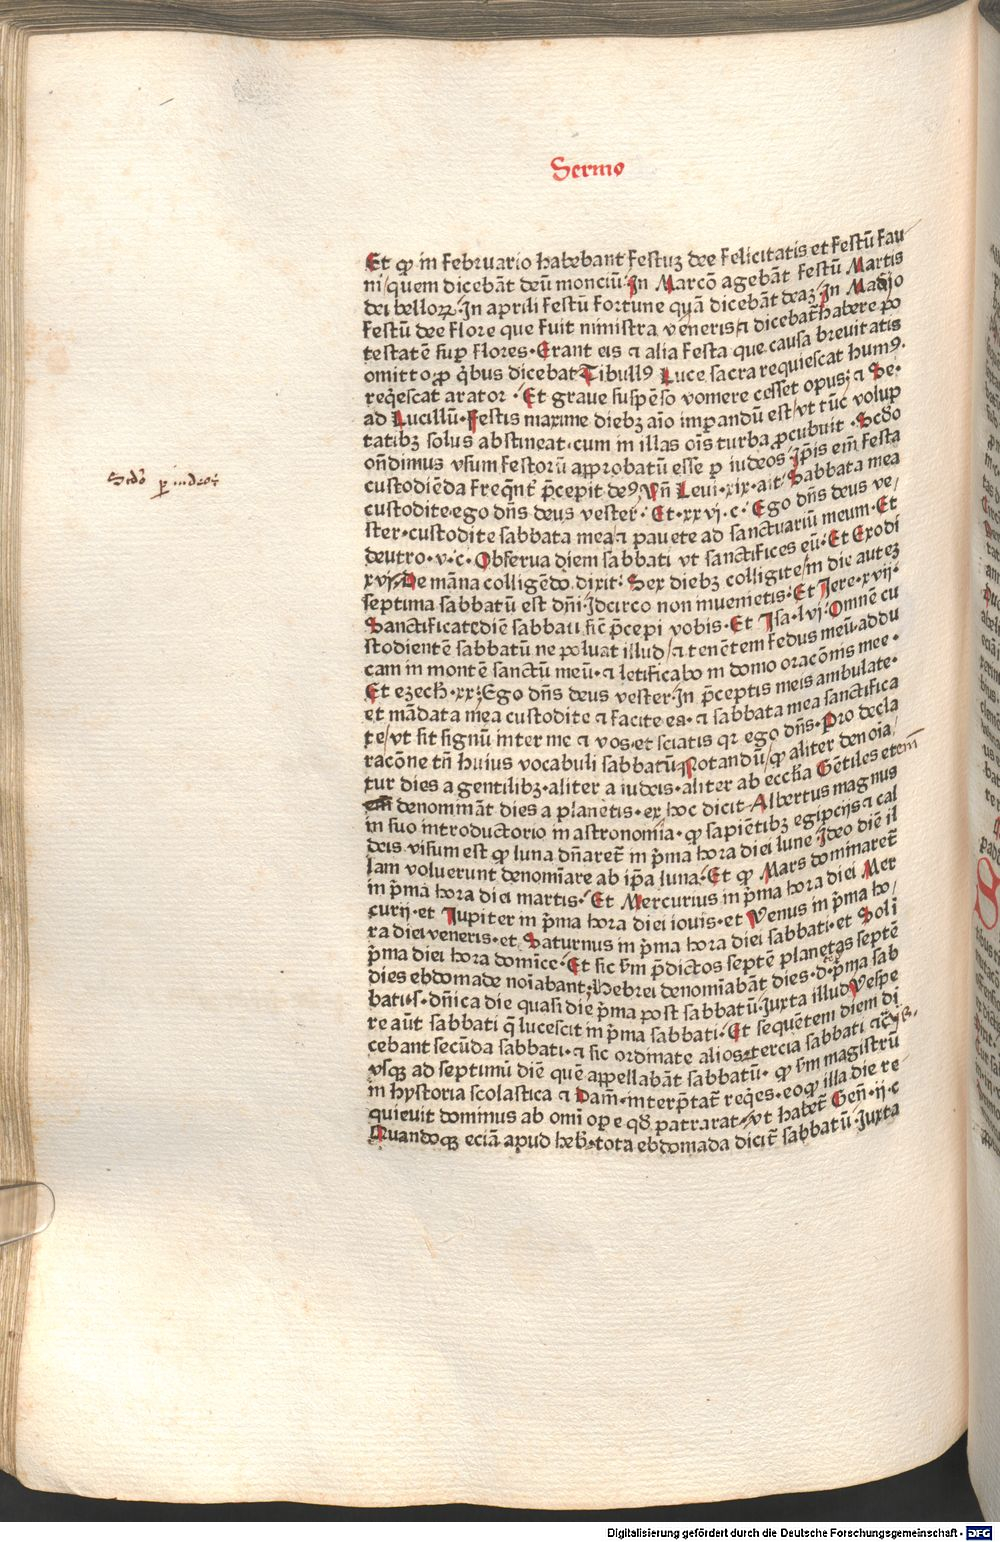 Sermo
Et ꝙ in Februario habebant Festuʒ dee Felicitatis et Festū Fau
ni/quem dicebāt deū monciū·In Marcō agebāt Festū Martis
dei belloꝝ·In aprili Festū Fortune quā dicebāt deaʒ·In Madio
Festū dee Flore que Fuit ministra veneris/⁊ dicebat̄ habere po
testatē sup̱ Flores·Erant eis ⁊ alia Festa que causa breuitatis
omitto ꝓ q̄bus dicebat Tibullꝰ Luce sacra requiescat humꝰ·
req̄escat arator·Et graue suspēso vomere cesset opus; ⁊ Se·
ad Lucillū·Festis maxime diebꝫ aīo imꝑandū est/vt tūc volup
tatibꝫ solus abstineat·cum in illas oīs turba ꝓcubuit·Scd̄o
ondīmus vsum Festorū aꝓbatū esse ꝑ iudeos·Ip̄is eīm Festa
custodiēda Freq̄nt̄ p̄cepit deꝰ·Vn̄ Leui·xix·ait·Sabbata mea
custodite·ego dn̄s deus vester·Et·xxvj·c·Ego dn̄s deus ve/
ster·custodite sabbata mea·⁊ pauete ad sanctuariū meum·Et
deutro·v·c·Obserua diem sabbati vt sanctifices eū·Et Exodi
xvj·De māna colligēdo dixit·Sex diebꝫ colligite/in die auteʒ
septima sabbatū est dn̄i·Idcirco non inuenietis·Et Iere·xvij·
Sanctificatediēm sabbati sic̄ p̄cepi vobis·Et Isa·lvj·Omnē cu
stodientē sabbatū ne poluat illud/⁊ tenētem Fedus meū·addu
cam in montē sanctū meū·⁊ letificabo in domo oracōnis mee·
Et eʒech̄·xx·Ego dn̄s deus vester·In p̄ceptis meis ambulate·
et mādata mea custodite ⁊ Facite ea·⁊ sabbata mea sanctifica
te/vt sit signū inter me ⁊ vos·et sciatis qr ego dn̄s·Pro decla
racōne tn̄ huius vocabuli sabbatū·Notandū/ꝙ aliter denoīa/
tur dies a gentilibꝫ·aliter a iudeis·aliter ab ecch̄a Gētiles etem̄
em̄ denominā̄t dies a planetis·ex hoc dicit Albertus magnus
in suo introductorio in astronomia·ꝙ sapiētibꝫ egipcijs ⁊ cal
deis visum est ꝙ luna dn̄aret̄ in p̄ma hora diei lune·Ideo diē il
lam voluerunt denomīare ab ip̄a luna·Et ꝙ Mars dominaret̄
in p̄ma hora diei martis·Et Mercurius in p̄ma hora diei Mer
curij·et Iupiter in p̄ma hora diei iouis·et Venus in p̄ma ho/
ra diei veneris·et Saturnus in p̄ma hora diei sabbati·et Sol ī
p̄ma diei hora domīce·Et sic s̄m p̄dictos septē planetas septē
dies ebdomade noīabant·Hebrei denomīabāt dies·d·p̄ma sab
bati·s·dn̄ica die quasi die p̄ma post sabbatū·Iuxta illud Vespe
re aūt sabbati q̄ lucescit in p̄ma sabbati·Et sequētem diem di
cebant secūda sabbati·⁊ sic ordinate alios·tercia sabbati
vsqꝫ ad septimū diē quē aꝑpellabāt sabbatū·ꝙ s̄m magistrū
in hystoria scolastica ⁊ Dam̄·interp̄tat̄ req̄es·eo ꝙ illa die re
quieuit dominus ab omī oꝑe qd̄ patrarat·vt habet̄ Gen̄·ij·c
Quandoqꝫ eciā apud heb̄·tota ebdomada dicit̄ sabbatū·Iuxta
Scd̄o ꝑ iudeos